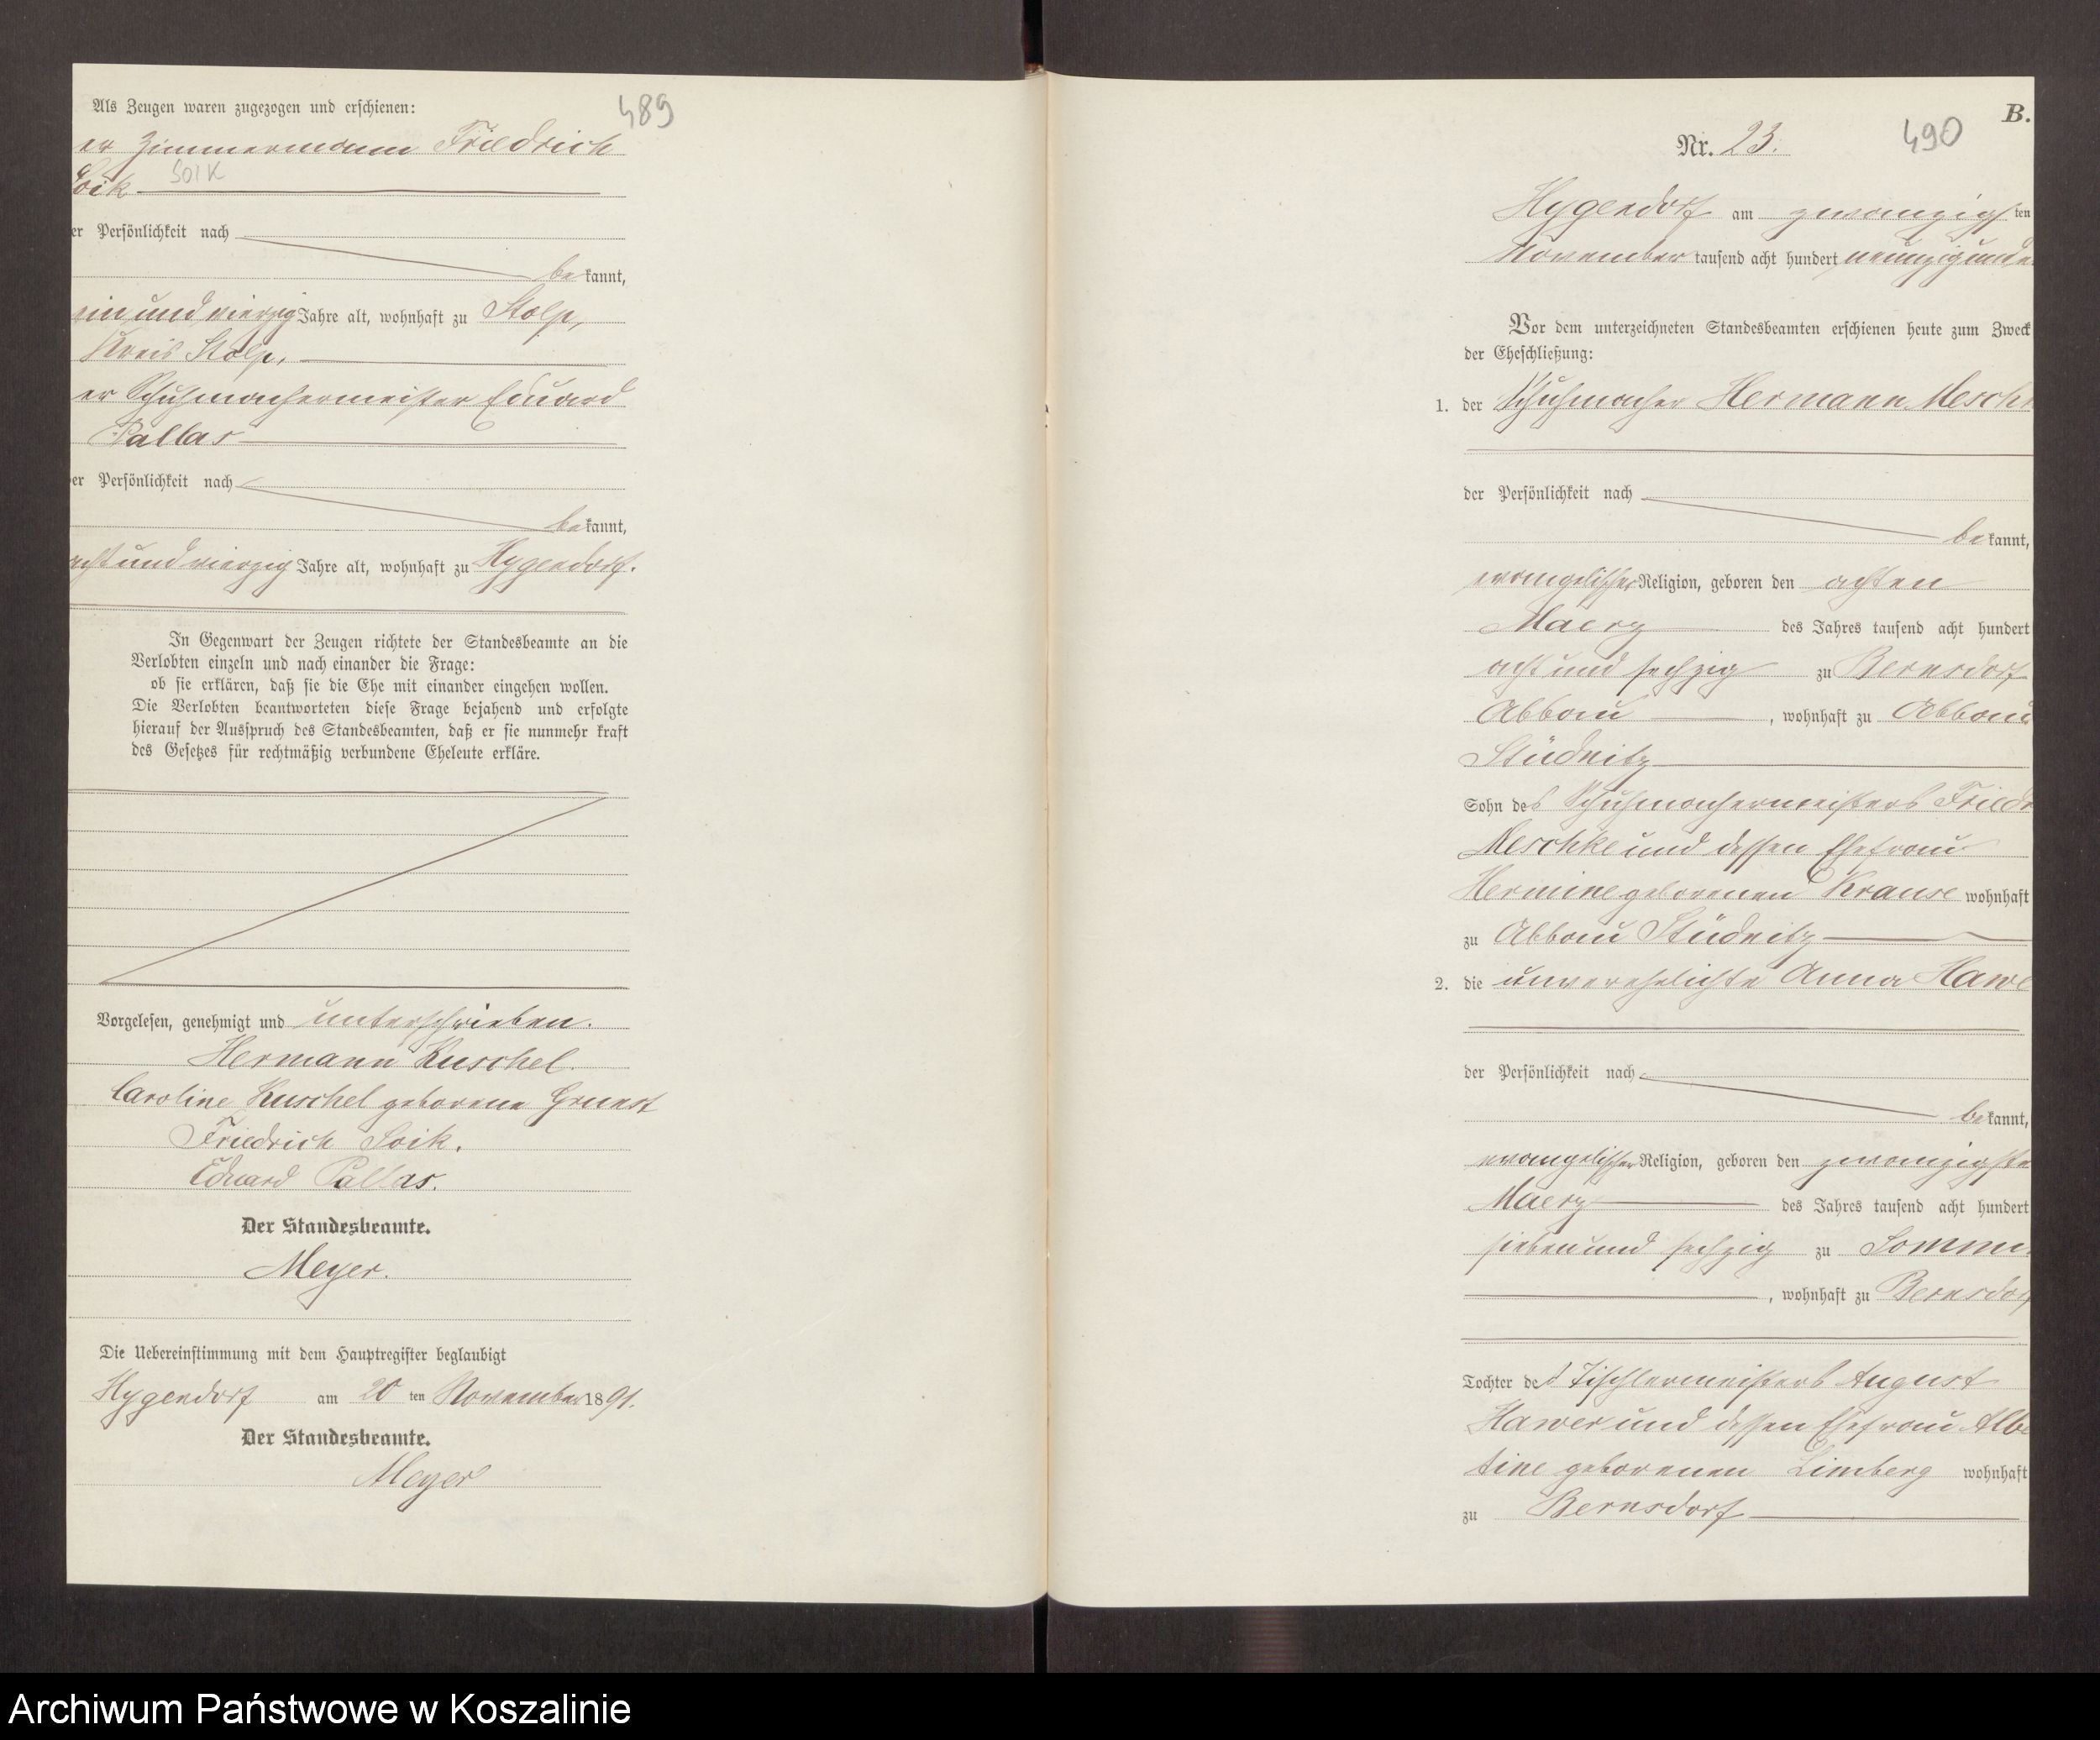 489
Als Zeugen waren zugezogen und erschienen:
er Zimmermann Friedrich
Soik
SOIK
er Persönlichkeit nach
be kannt,
ein und vierzig Jahre alt, wohnhaft zu Stolp,
Kreis Stolp.
er Schuhmachermeister Eduard
Pallas
er Persönlichkeit nach
be kannt,
acht und vierzig Jahre alt, wohnhaft zu Hygendorf.
In Gegenwart der Zeugen richtete der Standesbeamte an die
Verlobten einzeln und nach einander die Frage:
ob sie erklären, daß sie die Ehe mit einander eingehen wollen.
Die Verlobten beantworteten diese Frage bejahend und erfolgte
hierauf der Ausspruch des Standesbeamten, daß er sie nunmehr kraft
des Gesetzes für rechtmäßig verbundene Eheleute erkläre.
Vorgelesen, genehmigt und unterschrieben.
Hermann Kuschel.
Caroline Kuschel geborene Grunst
Friedrich Soik.
Eduard Pallas.
Der Standesbeamte.
Meyer.
Die Uebereinstimmung mit dem Hauptregister beglaubigt
Hygendorf am 20 ten November 1891.
Der Standesbeamte.
Meyer
B.
490
Nr. 23.
Hygendorf am zwanzigs ten
November tausend acht hundert neunzig und e
Vor dem unterzeichneten Standesbeamten erschienen heute zum Zweck
der Eheschließung:
1. der Schuhmacher Hermann Mesch
der Persönlichkeit nach
be kannt,
evangelischer Religion, geboren den achten
Maerz des Jahres tausend acht hundert
acht und sechzig zu Bernsdorf
Abbau, wohnhaft zu Abbau
Stüdnitz
Sohn des Schuhmachermeisters Friedr
Meschke und dessen Ehefrau
Hermine geborenen Krause wohnhaft
zu Abbau Stüdnitz
2. die unverehelichte Anna Hawe
der Persönlichkeit nach
be kannt,
evangelischer Religion, geboren den zwanzigste
Maerz des Jahres tausend acht hundert
sieben und sechzig zu Sommi
, wohnhaft zu Bernsdorf
Tochter des Tischlermeisters August
Hawer und dessen Ehefrau Albe
tine geborenen Limberg wohnhaft
zu Bernsdorf
Archiwum Państwowe w Koszalinie